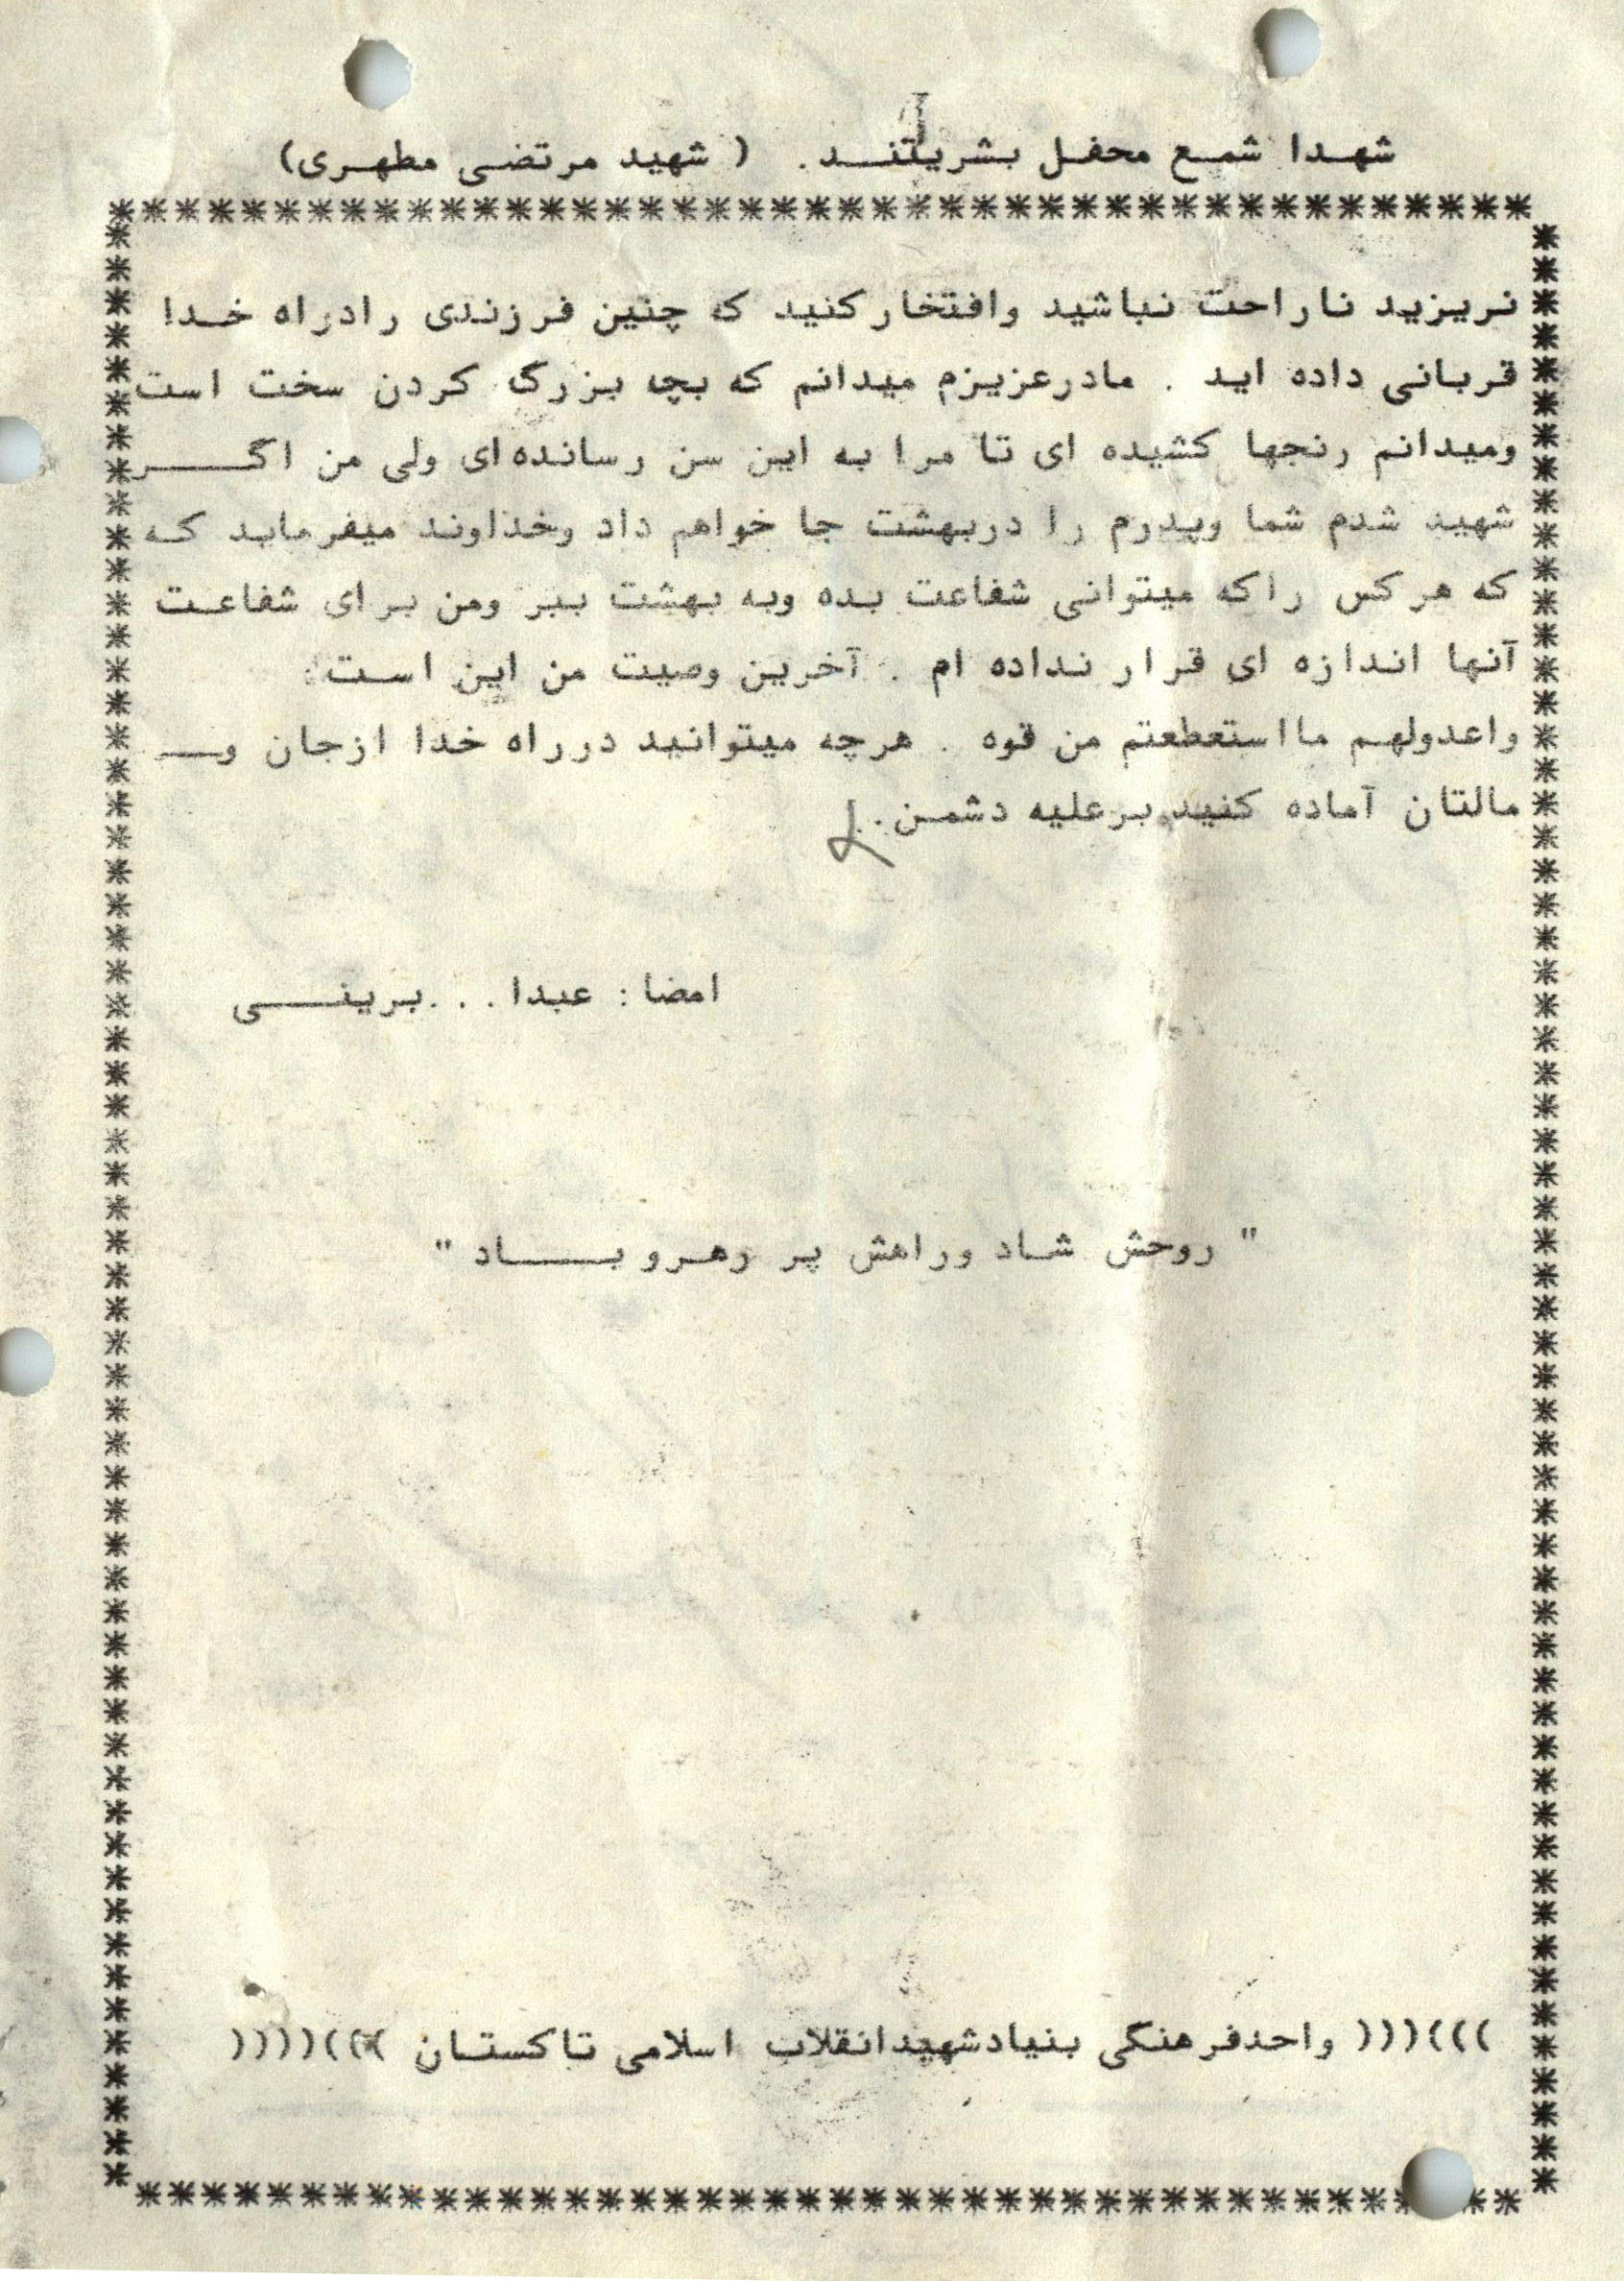 شهدا شمع محفل بشریتند . ( شهید مرتضی مطهری)
نریزید ناراحت نباشید وافتخارکنید که چنین فرزندی رادراه خدا
قربانی داده اید . مادرعزیزم میدانم که بچه بزرگ کردن سخت است
ومیدانم رنجها کشیده ای تا مرا به این سن رسانده‌ای ولی من اگر
شهید شدم شما وپدرم را دربهشت جا خواهم داد وخداوند میفرماید که
که هرکس راکه میتوانی شفاعت بده وبه بهشت ببر ومن برای شفاعت
آنها اندازه ای قرار نداده ام . آخرین وصیت من این است:
واعدولهم مااستعطعتم من قوه . هرچه میتوانید درراه خدا ازجان و
مالتان آماده کنید برعلیه دشمن .
امضا : عبدا . . .برینی
" روحش شاد وراهش پر رهرو باد "
)))((( واحدفرهنگی بنیادشهیدانقلاب اسلامی تاکستان )))((((